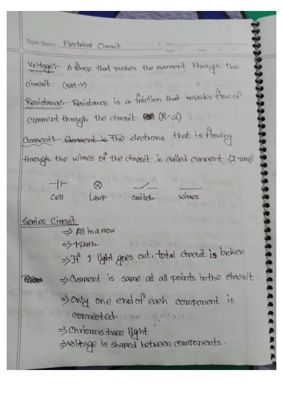 Topic Name: Electrical Circuit
Voltage:- A force that pushes the current through the
circuit. (volt-v)
Resistance:- Resistance is a friction that impedes flow of
current through the circuit. (R-Ω)
Current:- The electrons that is flowing
through the wires of the circuit is called current. (I-amp)
Cell Lamp switch wires
Series Circuit
⇒ All in a row
⇒ 1 path
⇒ If 1 light goes out, total circuit is broken
⇒ Current is same at all points in the circuit.
⇒ Only one end of each component is
connected.
⇒ Christmas tree light
⇒ Voltage is shared between components.